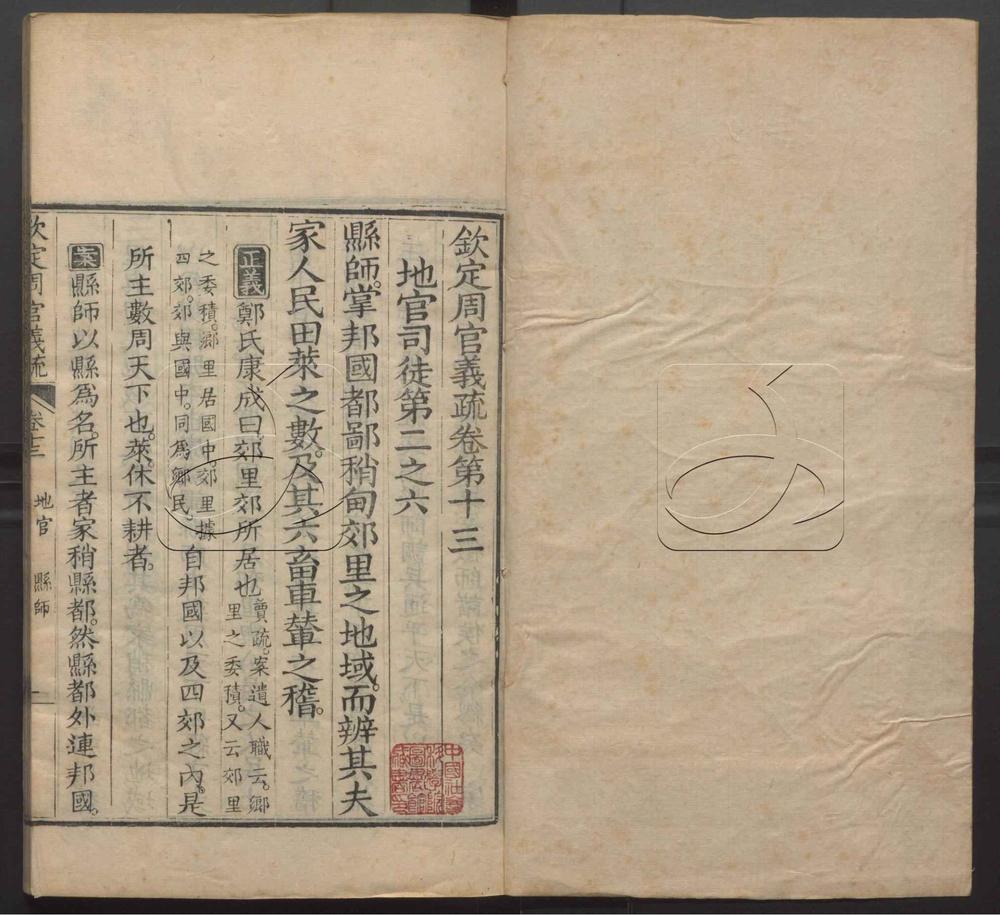 欽定周官義疏卷第十三
地官司徒第二之六
縣師。掌邦國都鄙稍甸郊里之地域。而辨其夫
家人民田萊之數。及其六畜車輦之稽。
正義 鄭氏康成曰。郊里郊所居也。賈疏。案遺人職云。鄉里之委積。又云郊里
之委積。鄉里居國中。郊里據四郊。郊與國中。同爲鄉民。自邦國以及四郊之內。是
所主數周天下也。萊。休不耕者。
案 縣師以縣爲名。所主者家稍縣都。然縣都外連邦國。
欽定周官義疏 卷十三 地官 縣師 一